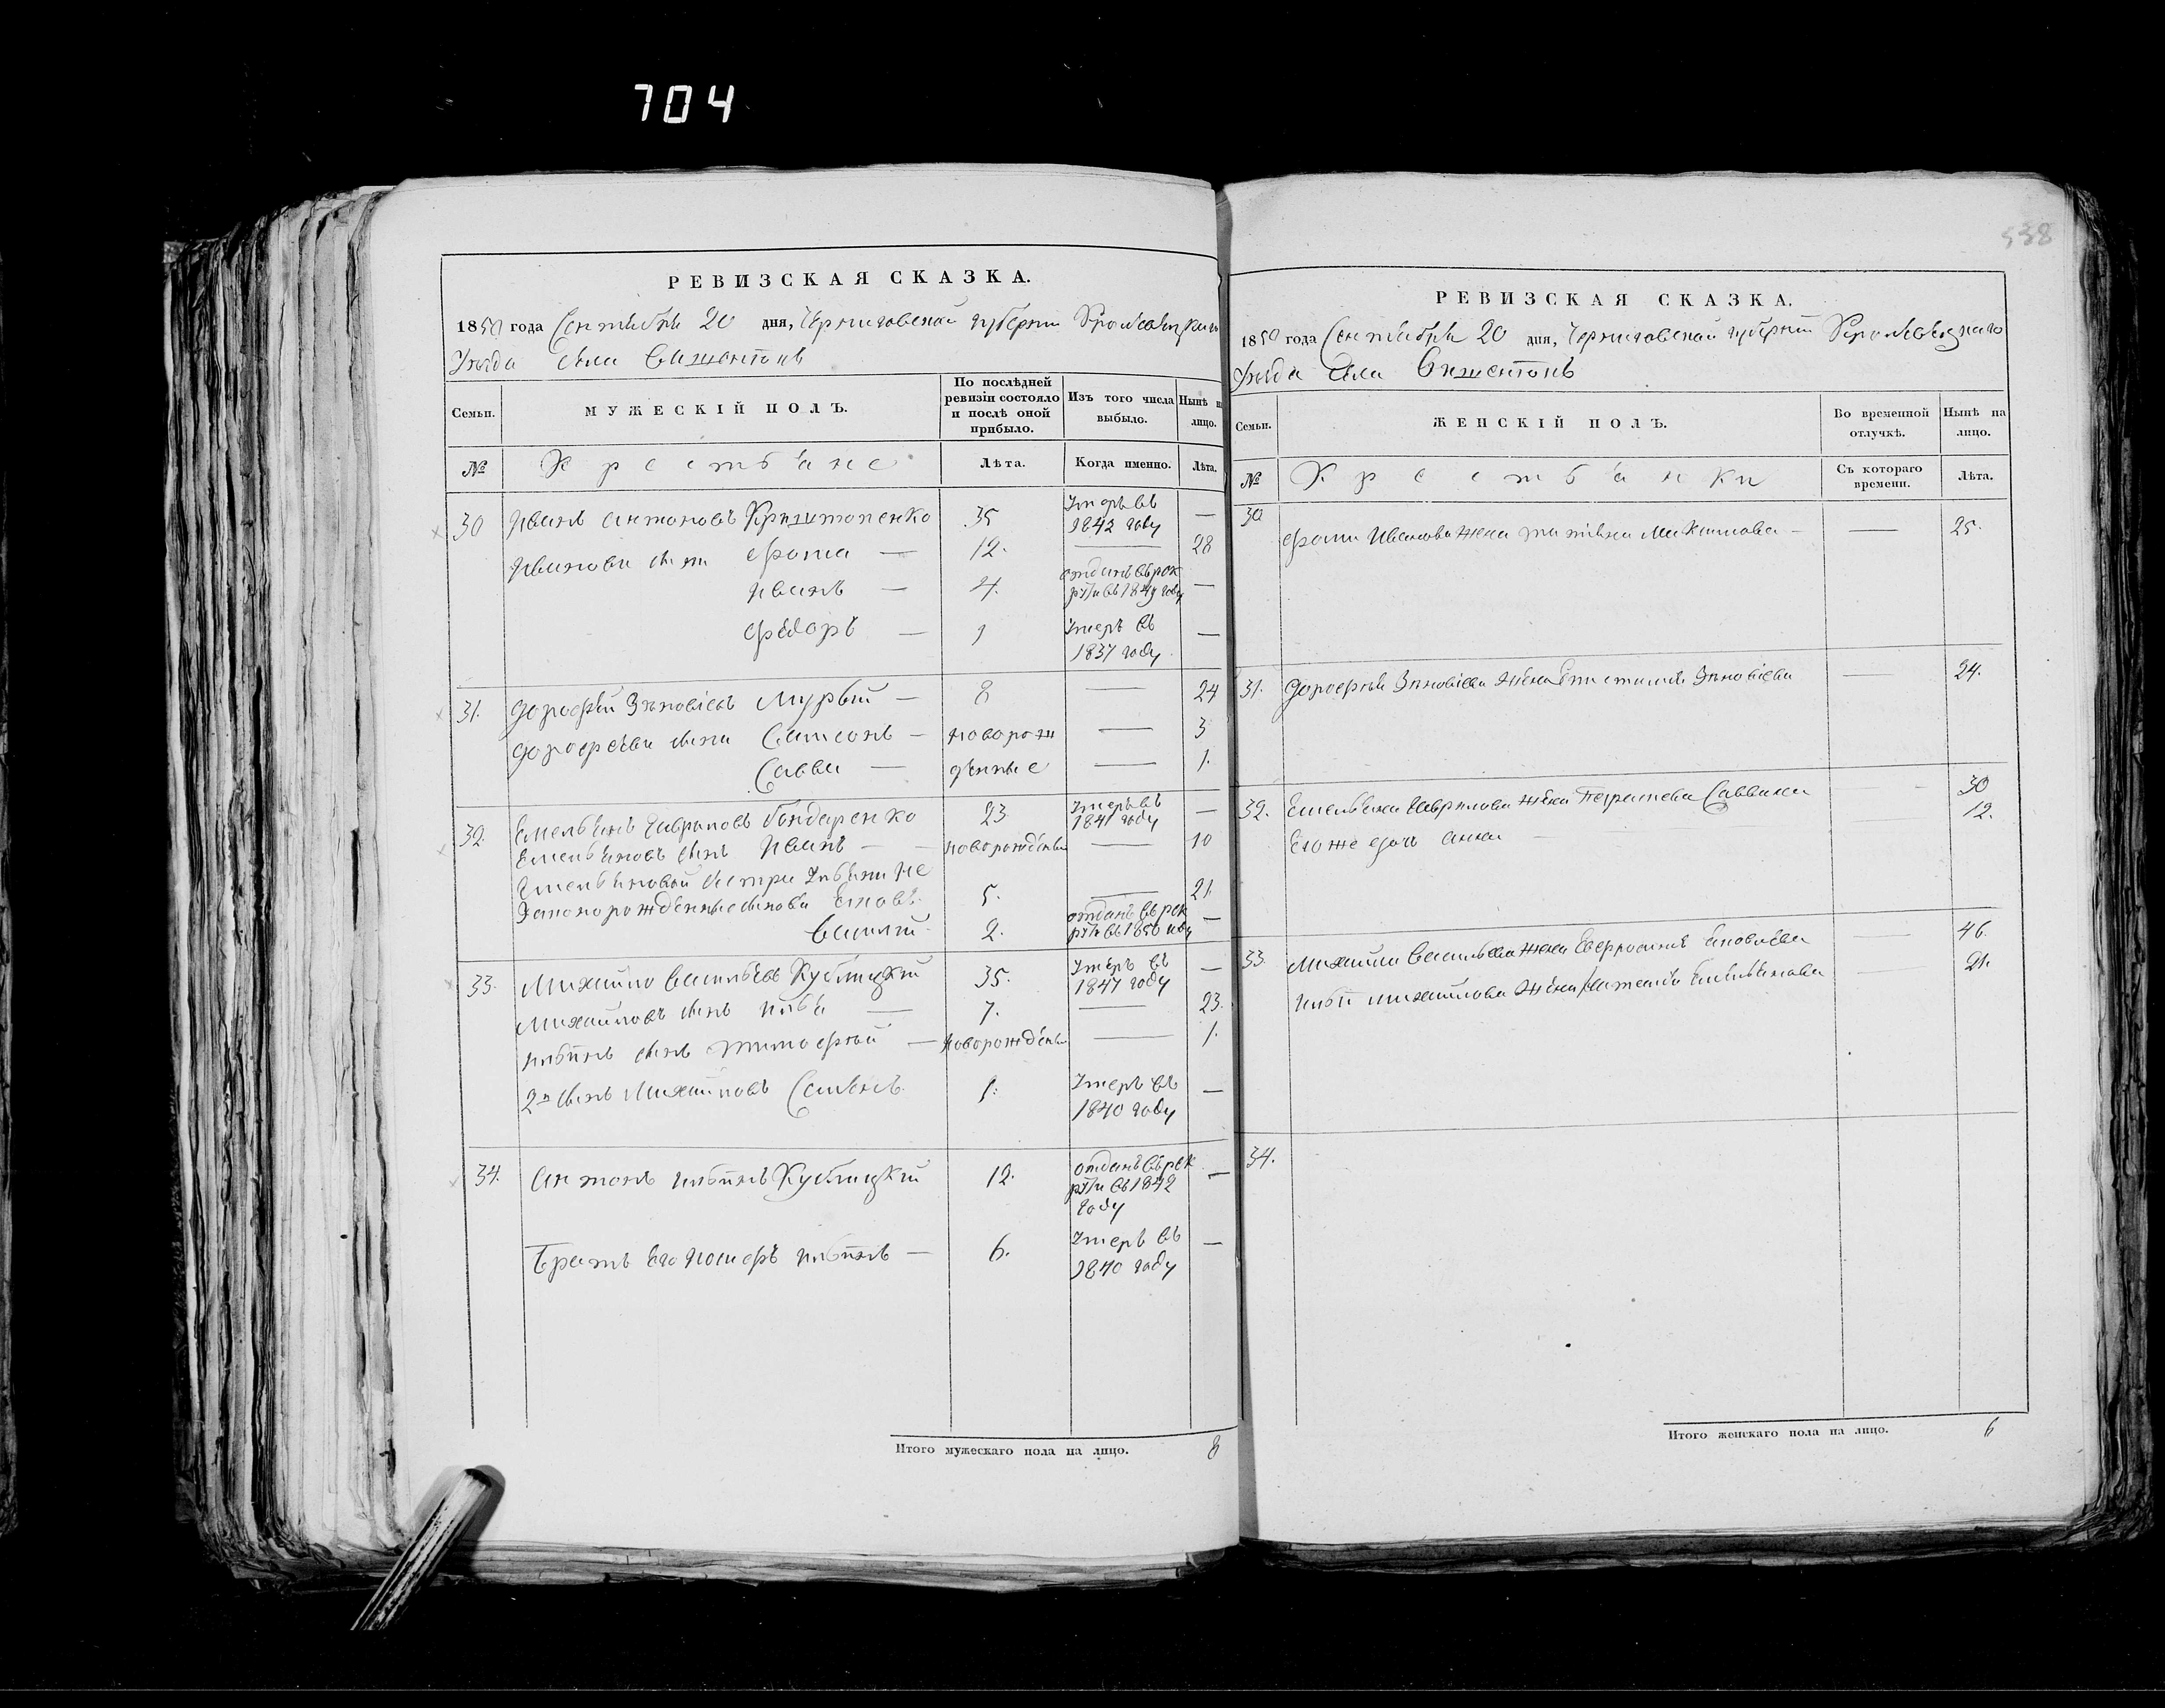 704
538
РЕВИЗСКАЯ СКАЗКА.
1850 года Сентября 20 дня, Черниговской губернии Кролевецкаго
Уезда Села
Семьи. МУЖЕСКІЙ ПОЛЪ. По послѣдней ревизіи состояло и послѣ оной прибыло. Изъ того числа выбыло. Нынѣ на лицо.
№ Крестьяне Лѣта. Когда именно. Лѣта.
30 Иванъ Антоновъ 35 Умеръ въ 1842 году —
Ивановы сыны Фома — 12. — 28
Иванъ — 4. отданъ въ рекруты въ 1849 году —
Федоръ — 1 Умеръ въ 1837 году —
31. Дорофей Зѣновіевъ Мурый — 8 — 24
Дорофѣевы сыны Самсонъ — новорож — 3
Савва — денные — 1.
32. Емельянъ Гавриловъ Бондаренко 23 Умеръ въ 1841 году —
Емельяновъ сынъ Иванъ — новорожденъ — 10
Емельяновой сестры Ульяны не
законорожденные сыновья Яковъ 5. — 21.
Василій 2. отданъ въ рекруты въ 1850 году —
33. Михайло Васильевъ Кублицкій 35. Умеръ въ 1847 году —
Михайловъ сынъ Илья — 7. — 23.
Ильинъ сынъ Тимофей — новорожденъ — 1.
2й сынъ Михайловъ Семенъ 1. Умеръ въ 1840 году —
34. Антонъ Ильинъ Кублицкій 12. отданъ въ рекруты въ 1842 году —
Братъ его Ильинъ — 6. Умеръ въ 1840 году —
Итого мужескаго пола на лицо. 8
РЕВИЗСКАЯ СКАЗКА.
1850 года Сентября 20 дня, Черниговской губерніи Кролевецкаго
Уезда Села
Семьи. ЖЕНСКІЙ ПОЛЪ. Во временной отлучкѣ. Нынѣ на лицо.
№ Крестьянки Съ котораго времени. Лѣта.
30 Фомы Иванова жена Татьяна Максимова — — 25.
31. Дорофея Зѣновіева жена Зѣновіева — 24.
32. Емельяна Гаврилова жена Саввина — 30
Его же дочь Анна — 12.
33. Михайлы Васильева жена Евфросинія Яковлева — 46.
Ильи Михайлова жена Емельянова — 21.
34.
Итого женскаго пола на лицо. 6